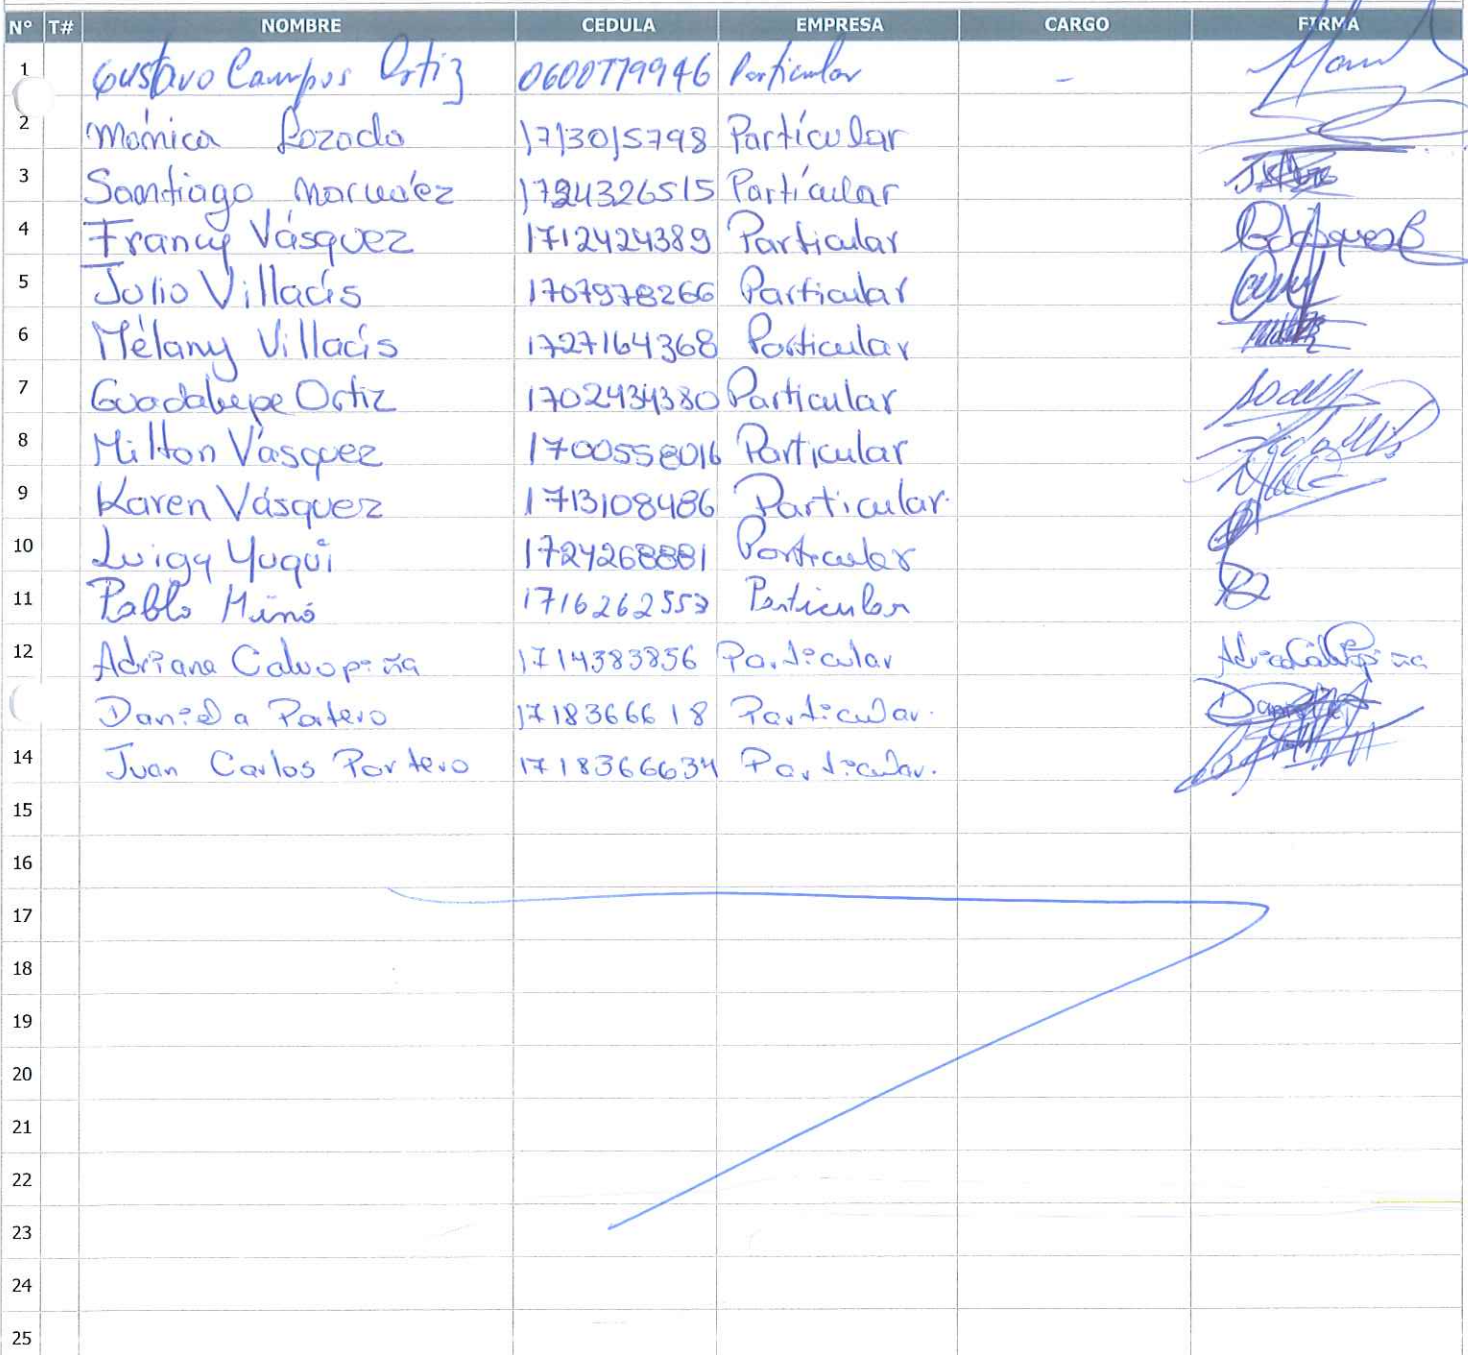 N° T# NOMBRE CEDULA EMPRESA CARGO FIRMA
1 Gustavo Campos Ortiz 0600779946 Particular -
2 Mónica Lozada 1713015798 Partícular
3 Santiago 1724326515 Partícular
4 Francy Vásquez 1712424389 Particular
5 Julio Villacís 1707978266 Particular
6 Mélany Villacís 1727164368 Particular
7 Guadalupe Ortiz 1702434380 Particular
8 Milton Vásquez 1700558016 Particular
9 Karen Vásquez 1713108486 Particular.
10 Luigy Yuqui 1724268881 Particular
11 Pablo Miño Particular
12 Adriana Calvopiña 1714383856 Particular
Daniela Portero 171836661 8 Particular.
14 Juan Carlos Portero 1718366634 Particular.
15
16
17
18
19
20
21
22
23
24
25